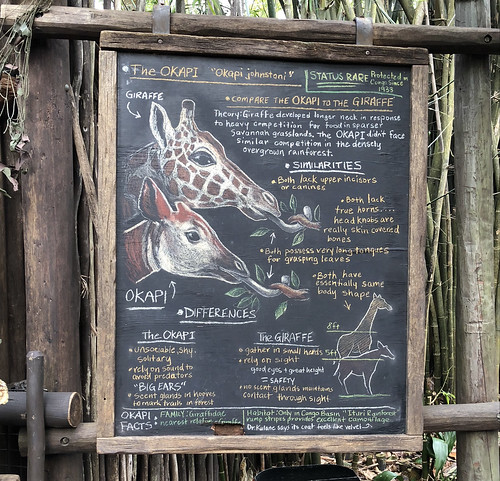 The OKAPI "Okapi johnstoni"
STATUS RARE Protected in
Congo Since
1933
GIRAFFE
• COMPARE THE OKAPI TO THE GIRAFFE
Theory: Giraffe developed longer neck in response
to heavy competition for food in sparser
Savannah grasslands. The OKAPI didn't face
similar competition in the densely
overgrown rainforest.
• SIMILARITIES
• Both lack upper incisors
or canines
• Both lack
true horns....
head knobs are
really skin covered
bones
• Both possess very long tongues
for grasping leaves
• Both have
essentially same
body shape
OKAPI
• DIFFERENCES
The OKAPI
• unsociable, shy,
solitary
• rely on sound to
avoid predators
"BIG EARS"
• Scent glands in hooves
to mark trails in forest
The GIRAFFE
• gather in small hands
• rely on sight
good eyes + great height
= SAFETY
• no scent glands maintains
contact through sight
8ft
5ft
OKAPI FACTS:
• FAMILY: Giraffidae
• nearest relative giraffe
Habitat: Only in Congo Basin "Ituri Rainforest"
Rump stripes provides excellent camouflage
Dr. Kulane says its coat feels like velvet